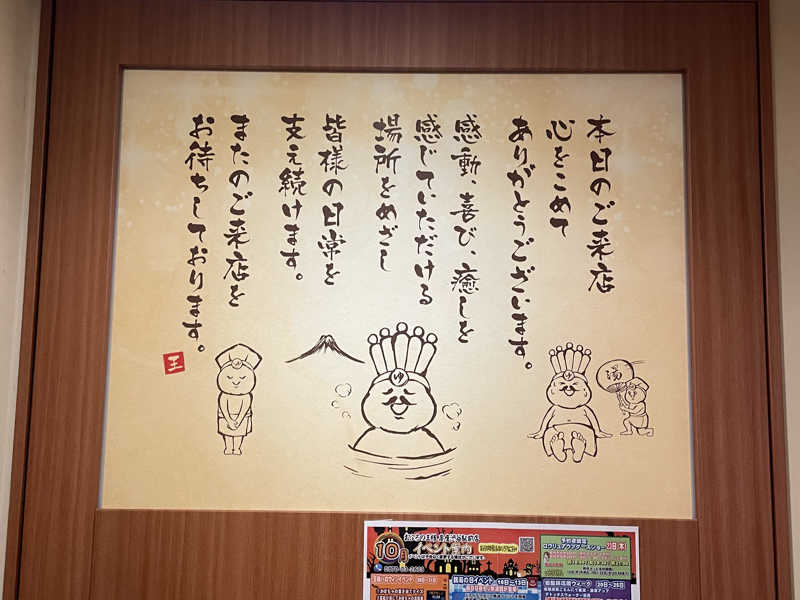 本日のご来店
心をこめて
ありがとうございます。
感動、喜び、癒しを
感じていただける
場所をめざし
皆様の日常を
支え続けます。
またのご来店を
お待ちしております。
王
ゆ
湯
10
イベント案内